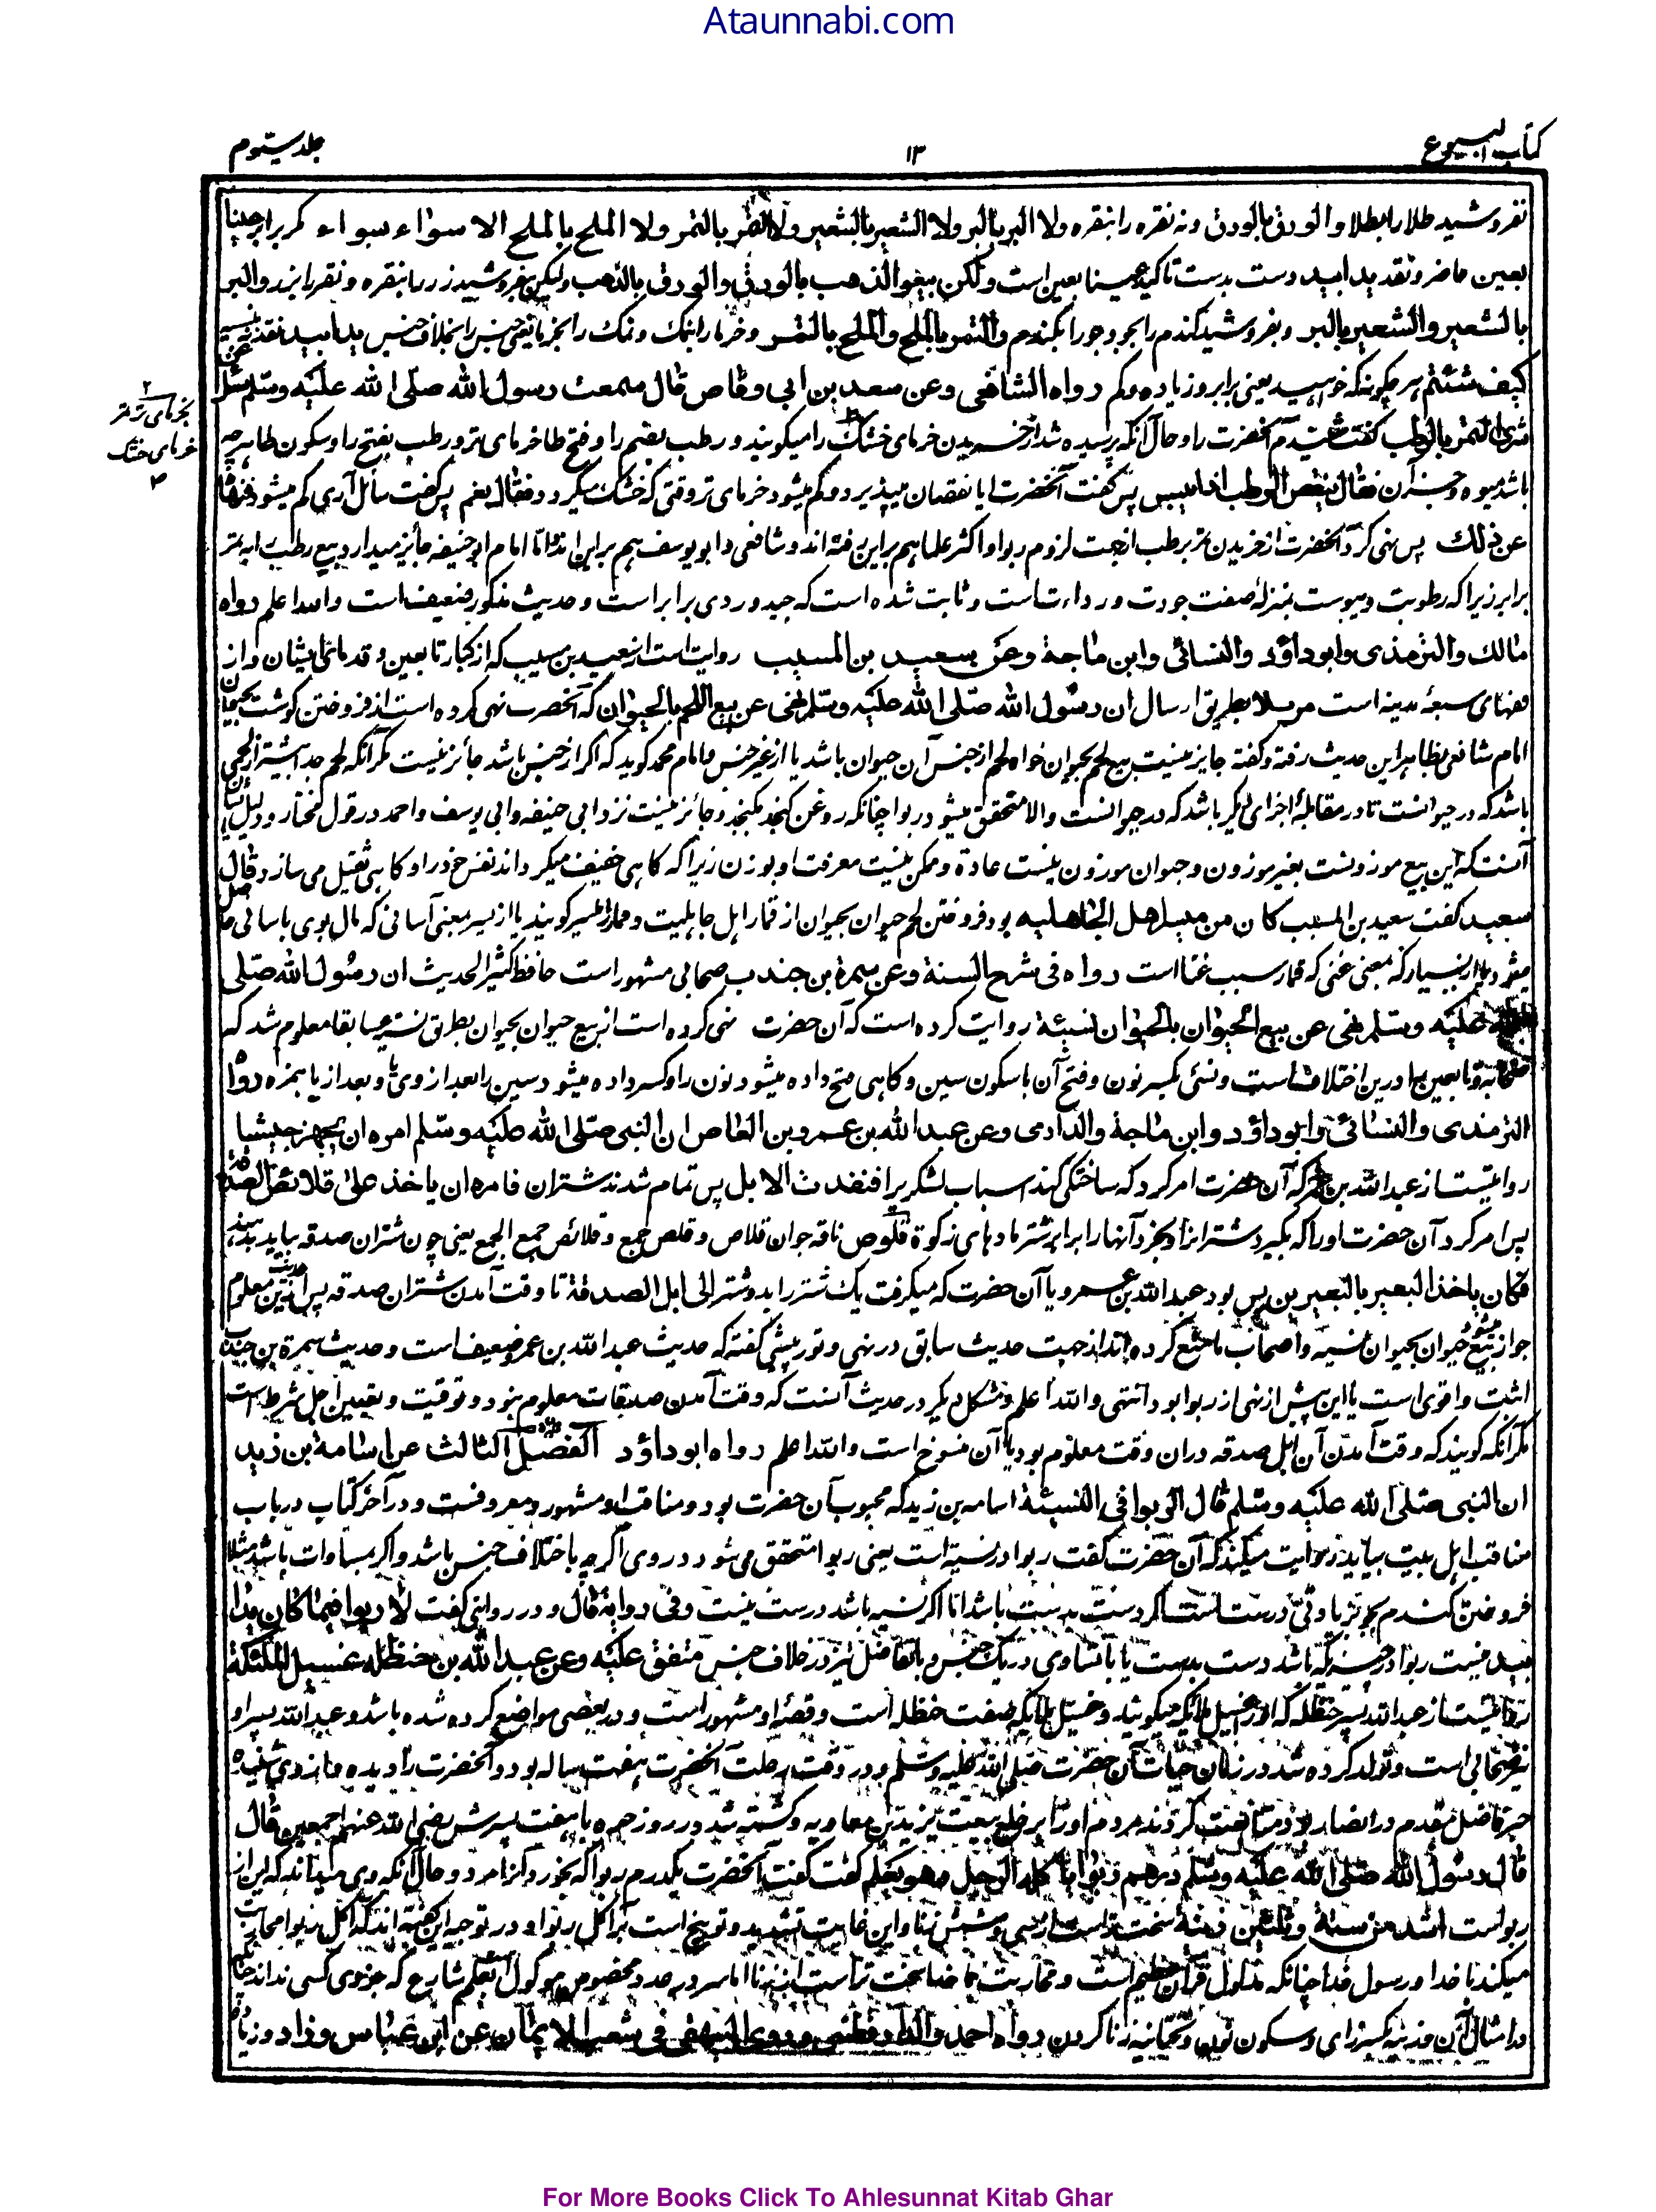 Ataunnabi.com
کتاب البیوع
۱۳
جلد سیوم
نفروشید طلا را بطلا والورق بالورق ونه نقره را بنقره ولا البر بالبر ولا الشعیر بالشعیر ولا التمر بالتمر ولا الملح بالملح الا سواء بسواء مگر برابر عینا
بعین حاضر و نقد یدا بید دست بدست تاکید عینا بعین است ولکن بیعوا الذهب بالورق والورق بالذهب ولیکن بفروشید زر را بنقره و نقره را بزر والبر
بالشعیر والشعیر بالبر وبفروشید گندم را بجو و جو را بگندم والتمر بالملح والملح بالتمر وخرما را بنمک و نمک را بخرما یعنی جنس را بخلاف جنس یدا بید نقد نه نسیه
کیف شئتم هر چگونه که خواهید یعنی برابر و زیاده و کم رواه الشافعی وعن سعد بن ابی وقاص قال سمعت رسول الله صلی الله علیه وسلم سئل عن
شری التمر بالرطب گفت شنیدم آنحضرت را و حال آنکه پرسیده شد از خریدن خرمای خشک را میگویند و رطب بضم را و فتح طا خرمای تر و رطب بفتح را و سکون طا هر چه
باشد میوه و جز آن فقال اینقص الرطب اذا یبس پس گفت آنحضرت ایا نقصان میپذیرد و کم میشود خرمای تر وقتی که خشک میگردد فقال نعم پس گفت سائل آری کم میشود فنهاه
عن ذلک پس نهی کرد آنحضرت از خریدن تمر برطب از جهت لزوم ربوا و اکثر علما هم براین رفته اند و شافعی و ابو یوسف هم براین اند و اما امام ابو حنیفه جائز میدارد بیع رطب را به تمر
برابر زیرا که رطوبت و یبوست بمنزلهٔ صفت جودت و رداءت است و ثابت شده است که جید و ردی برابر است و حدیث مذکور ضعیف است والله اعلم رواه
مالک والترمذی وابوداؤد والنسائی وابن ماجة وعن سعید بن المسیب روایت است از سعید بن مسیب که از کبار تابعین و قدمائی ایشان و از
فقهای سبعهٔ مدینه است مرسلا بطریق ارسال ان رسول الله صلی الله علیه وسلم نهی عن بیع اللحم بالحیوان که آنحضرت نهی کرده است از فروختن گوشت بحیوان
امام شافعی بظاهر این حدیث رفته و گفته جایز نیست بیع لحم بحیوان خواه لحم از جنس آن حیوان باشد یا از غیر جنس و امام محمد گوید که اگر از جنس باشد جائز نیست مگر آنکه لحم جدا بیشتر از لحمی
باشد که در حیوانست تا در مقابلهٔ اجزای دیگر باشد که در حیوانست والا متحقق میشود ربوا چنانکه روغن کنجد بکنجد و جائز نیست نزد ابی حنیفه و ابی یوسف و احمد در قول مختار و دلیل ایشان
آنست که این بیع موزونست بغیر موزون و حیوان موزون نیست عادة و ممکن نیست معرفت او بوزن زیرا که کاهی خفیف میگرداند نفس خود را و کاهی ثقیل می سازد قال
سعید گفت سعید بن المسیب کان من میسر اهل الجاهلیه بود فروختن لحم حیوان بحیوان از قمار اهل جاهلیت و قمار را میسر گویند یا از یسر بمعنی آسانی که مال بوی باسانی حاصل
میشود یا از یسار که معنی غنی که قمار سبب غنا است رواه فی شرح السنة وعن سمرة بن جندب صحابی مشهور است حافظ کثیر الحدیث ان رسول الله صلی
الله علیه وسلم نهی عن بیع الحیوان بالحیوان نسیئة روایت کرده است که آن حضرت نهی کرده است از بیع حیوان بحیوان بطریق نسیه سابقا معلوم شد که
صحابه و تابعین را درین اختلاف است و نسئی بکسر نون و فتح آن با سکون سین و کاهی فتح داده میشود نون را و کسر داده میشود سین را بعد از وی یا و بعد از یا همزه رواه
الترمذی والنسائی وابوداؤد وابن ماجة والدارمی وعن عبد الله بن عمرو بن العاص ان النبی صلی الله علیه وسلم امره ان یجهز جیشا
روایتست از عبد الله بن عمر که آن حضرت امر کرد که ساختگی کند اسباب لشکر یرا فنفدت الابل پس تمام شدند شتران فامره ان یاخذ علی قلائص الصدقة
پس امر کرد آن حضرت اورا که بگیرد شتر انرا و بخرد آنها را برابر شتر ماده‌های زکوة قلوص ناقه جوان قلاص و قلص جمع و قلائص جمع الجمع یعنی چون شتران صدقه بیاید بدهند
فکان یاخذ البعیر بالبعیرین پس بود عبد الله بن عمرو یا آن حضرت که میگرفت یک شتر را بدو شتر الی ابل الصدقة تا وقت آمدن شتران صدقه پس ازین حدیث معلوم
میشود جواز بیع حیوان بحیوان نسیه و اصحاب ما منع کرده اند از جهت حدیث سابق در نهی و تورپشتی گفته که حدیث عبد الله بن عمر ضعیف است و حدیث سمرة بن جندب
اثبت و اقوی است یا این پیش از نهی از ربوا بود انتهی والله اعلم و مشکل دیگر در حدیث آنست که وقت آمدن صدقات معلوم نبود و توقیت و تعیین اجل شرط است
مگر آنکه گویند که وقت آمدن آن ابل صدقه دران وقت معلوم بود یا آن منسوخ است والله اعلم رواه ابوداؤد الفصل الثالث عن اسامة بن زید
ان النبی صلی الله علیه وسلم قال الربوا فی النسیئة اسامه بن زید که محبوب آن حضرت بود و مناقب او مشهور و معروفست و در آخر کتاب در باب
مناقب اهل بیت بیاید روایت میکند که آن حضرت گفت ربوا در نسیه است یعنی ربوا متحقق می شود در وی اگر چه باختلاف جنس باشد و اگر بمساوات باشد مثلا
فروختن گندم بجو برابر یا و نی درست است اگر دست بدست باشد اما اگر نسیه باشد درست نیست وفی روایة قال و در روایتی گفت لا ربوا فیما کان یدا
بید نیست ربوا در چیزیکه باشد دست بدست یا با تساوی در یک جنس و با تفاضل نیز در خلاف جنس متفق علیه وعن عبد الله بن حنظله غسیل الملئکة
روایتست از عبد الله پسر حنظله که اورا غسیل ملائکه میگویند و غسیل ملائکه صفت حنظله است و قصهٔ او مشهور است و در بعضی مواضع کرده شده باشد و عبد الله پسر او
نیز صحابی است و تولد کرده شد در زمان حیات آن حضرت صلی الله علیه وسلم و در وقت رحلت آنحضرت هفت ساله بود و آنحضرت را دیده و از وی شنیده
خیر فاضل مقدم در انصار بود متابعت کردند مردم اورا بر خلع بیعت یزید بن معاویه و کشته شد در روز حره با هفت پسرش رضی الله عنهم اجمعین قال
قال رسول الله صلی الله علیه وسلم درهم ربوا یاکله الرجل وهو یعلم گفت گفت آنحضرت یکدرم ربوا که بخورد آنرا مرد و حال آنکه وی میداند که این از
ربواست اشد من ستة وثلثین زنیة سخت تر است از سی و شش زنا و این غایت تشدید و توبیخ است بر اکل ربوا و در توجیه این گفته اند که اکل ربوا محاربت
میکند با خدا و رسول خدا چنانکه مدلول قرآن عظیم است و محاربت با خدا سخت تر است از زنا اما سر در عدد مخصوص موکول بعلم شارع که جز وی کسی نداند چنانکه
در امثال آن و زنیه بکسر زای و سکون نون و تحتانیه زنا کردن رواه احمد والدارقطنی وروی البیهقی فی شعب الایمان عن ابن عباس وزاد و زیاد
بخرمای تر تمر
خرمای خشک
For More Books Click To Ahlesunnat Kitab Ghar